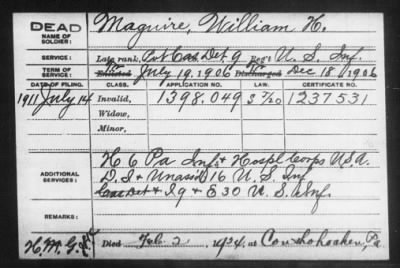 DEAD Maguire, William H.
NAME OF
SOLDIER:
SERVICE: Late rank, Pvt Cas Det 9 Reg't U. S. Inf.
Enlisted July 19, 1906 Discharged Dec 18, 1906
DATE OF FILING. CLASS. APPLICATION NO. LAW. CERTIFICATE NO.
1911 July 14 Invalid, 1398.049 1237531
Widow,
Minor,
H 6 Pa Inf. & Hospl Corps U.S.A.
ADDITIONAL
SERVICES: D. I & Unasid 16 U. S. Inf
Cas Det & I 9 & E 30 U. S. Inf.
REMARKS:
Died Feb. 2 1934, at Conshohocken, Pa